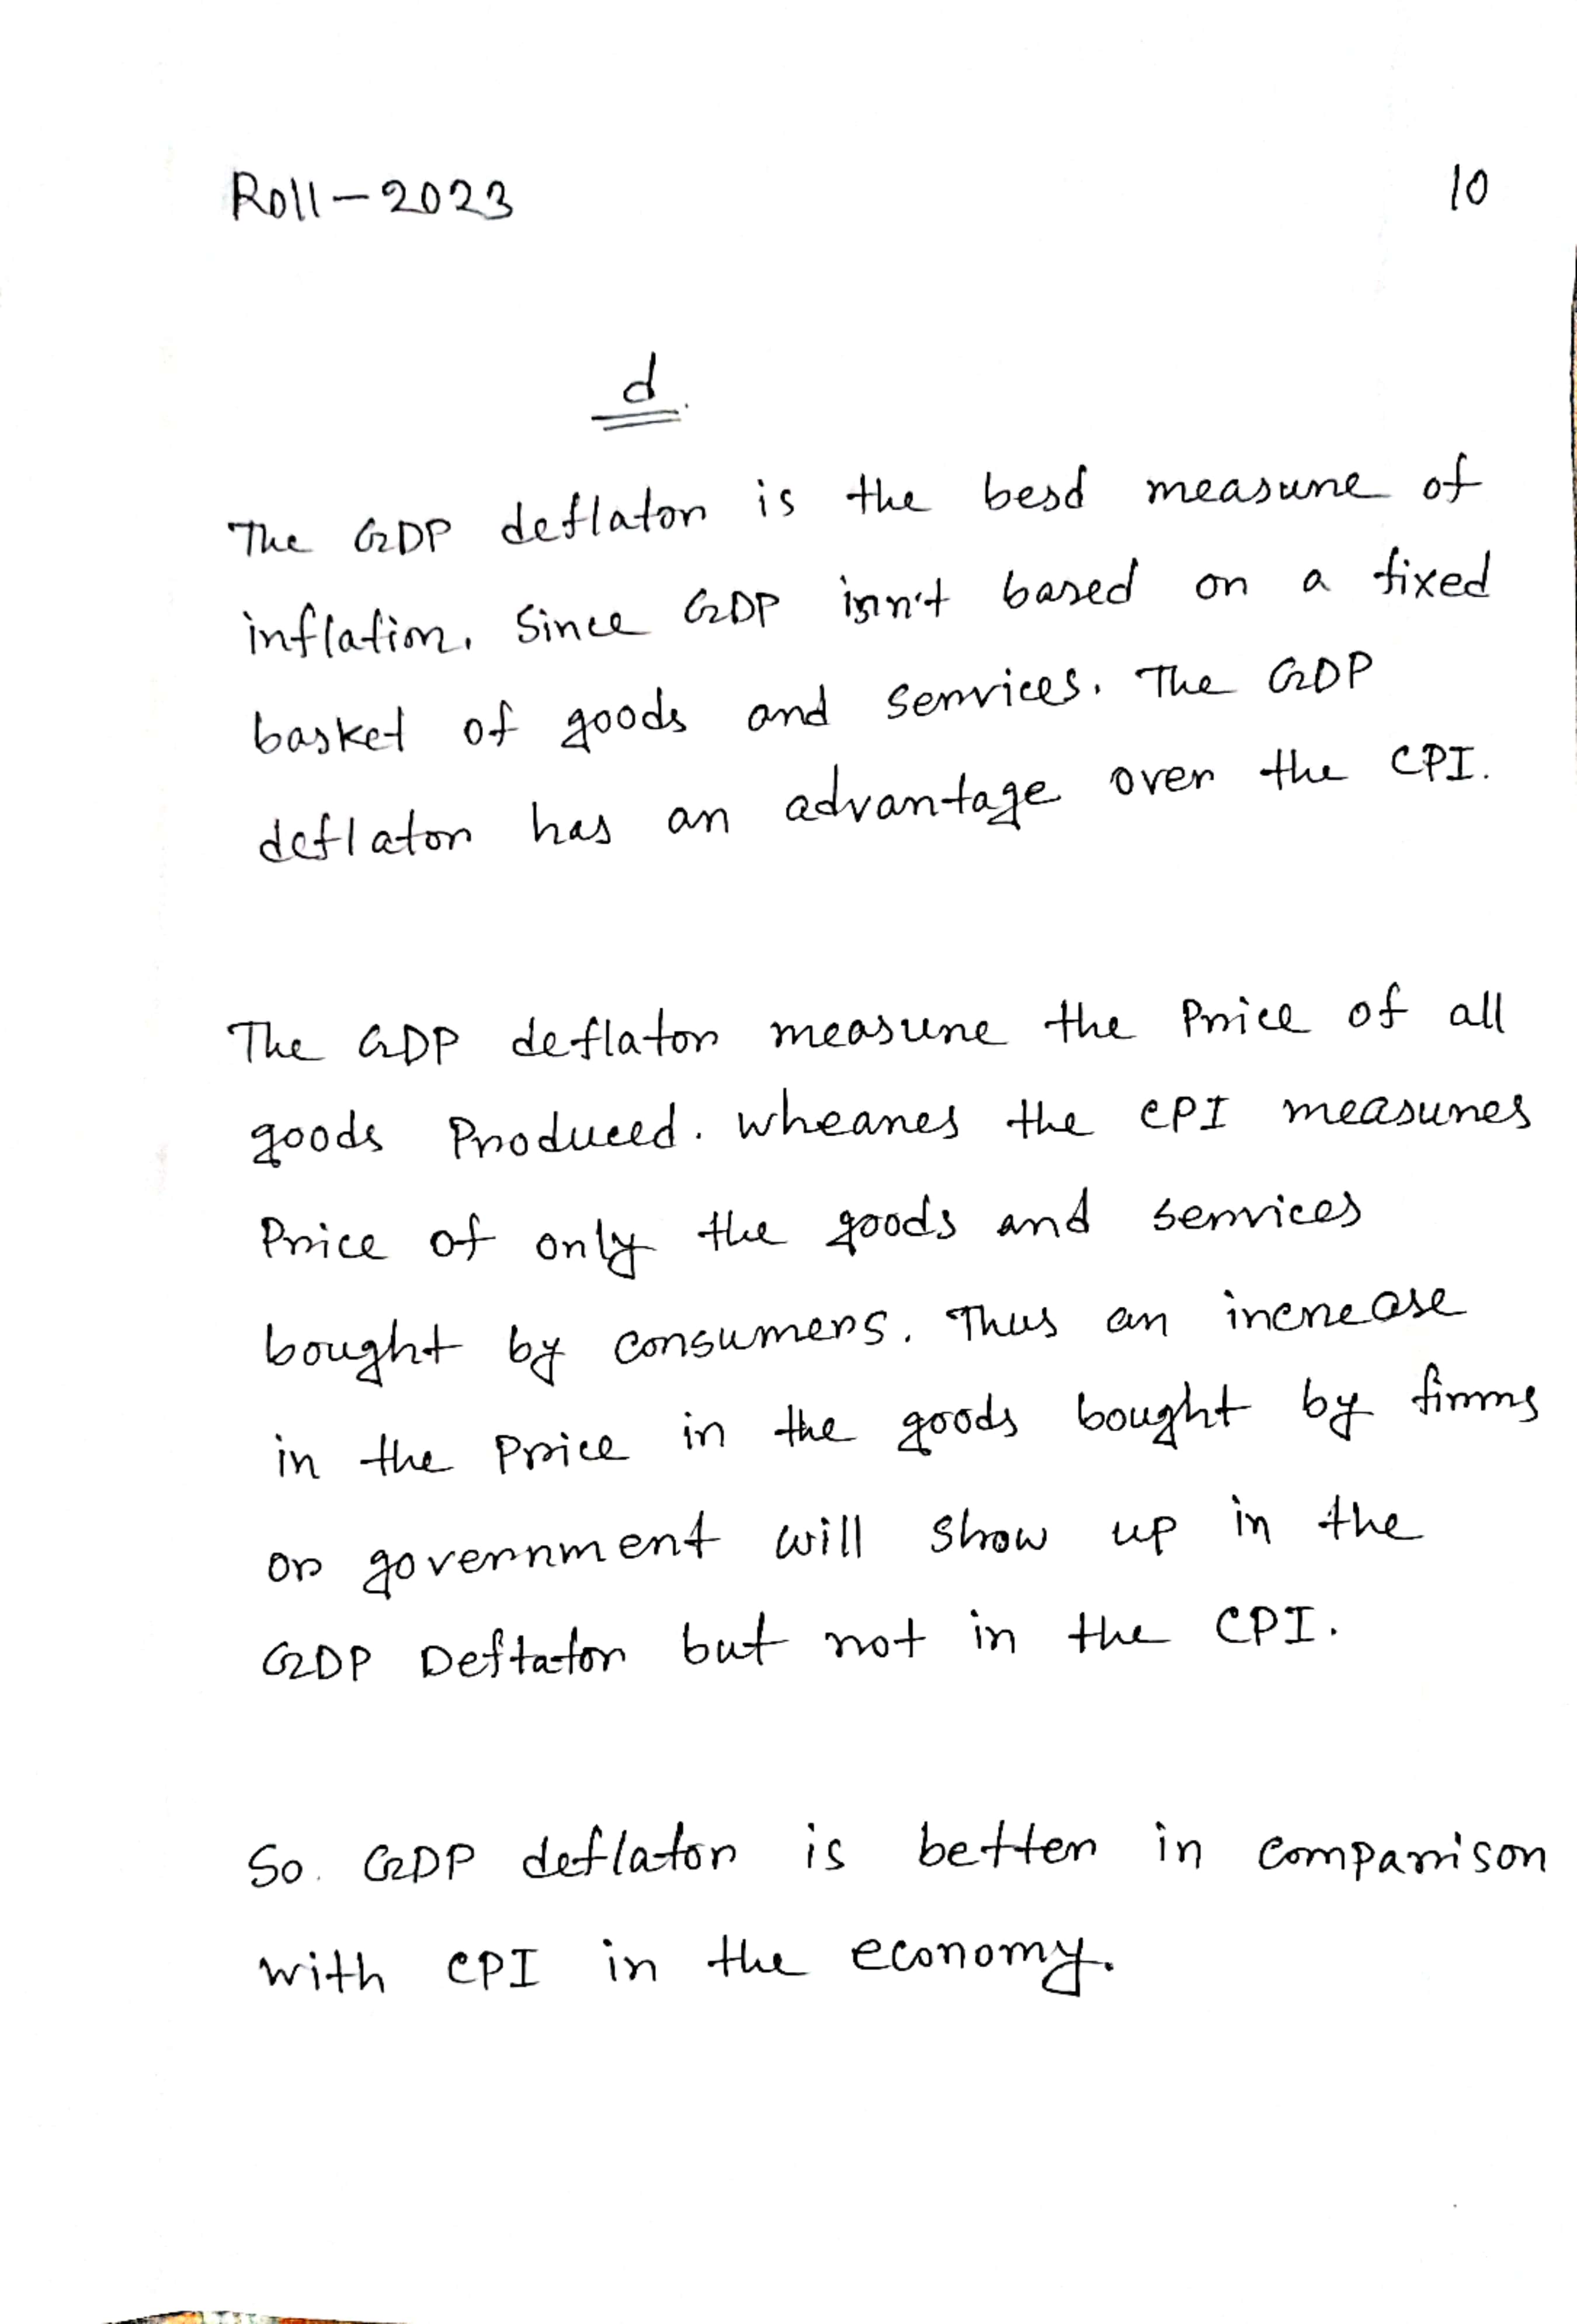 Roll-2023
10
d.
The GDP deflator is the best measure of
inflation. Since GDP isn't based on a fixed
basket of goods and services. The GDP
deflator has an advantage over the CPI.
The GDP deflator measure the Price of all
goods Produced. wheares the CPI measures
Price of only the goods and services
bought by consumers. Thus an increase
in the Price in the goods bought by firms
or government will show up in the
GDP Deftator but not in the CPI.
So. GDP deflator is better in comparison
with CPI in the economy.